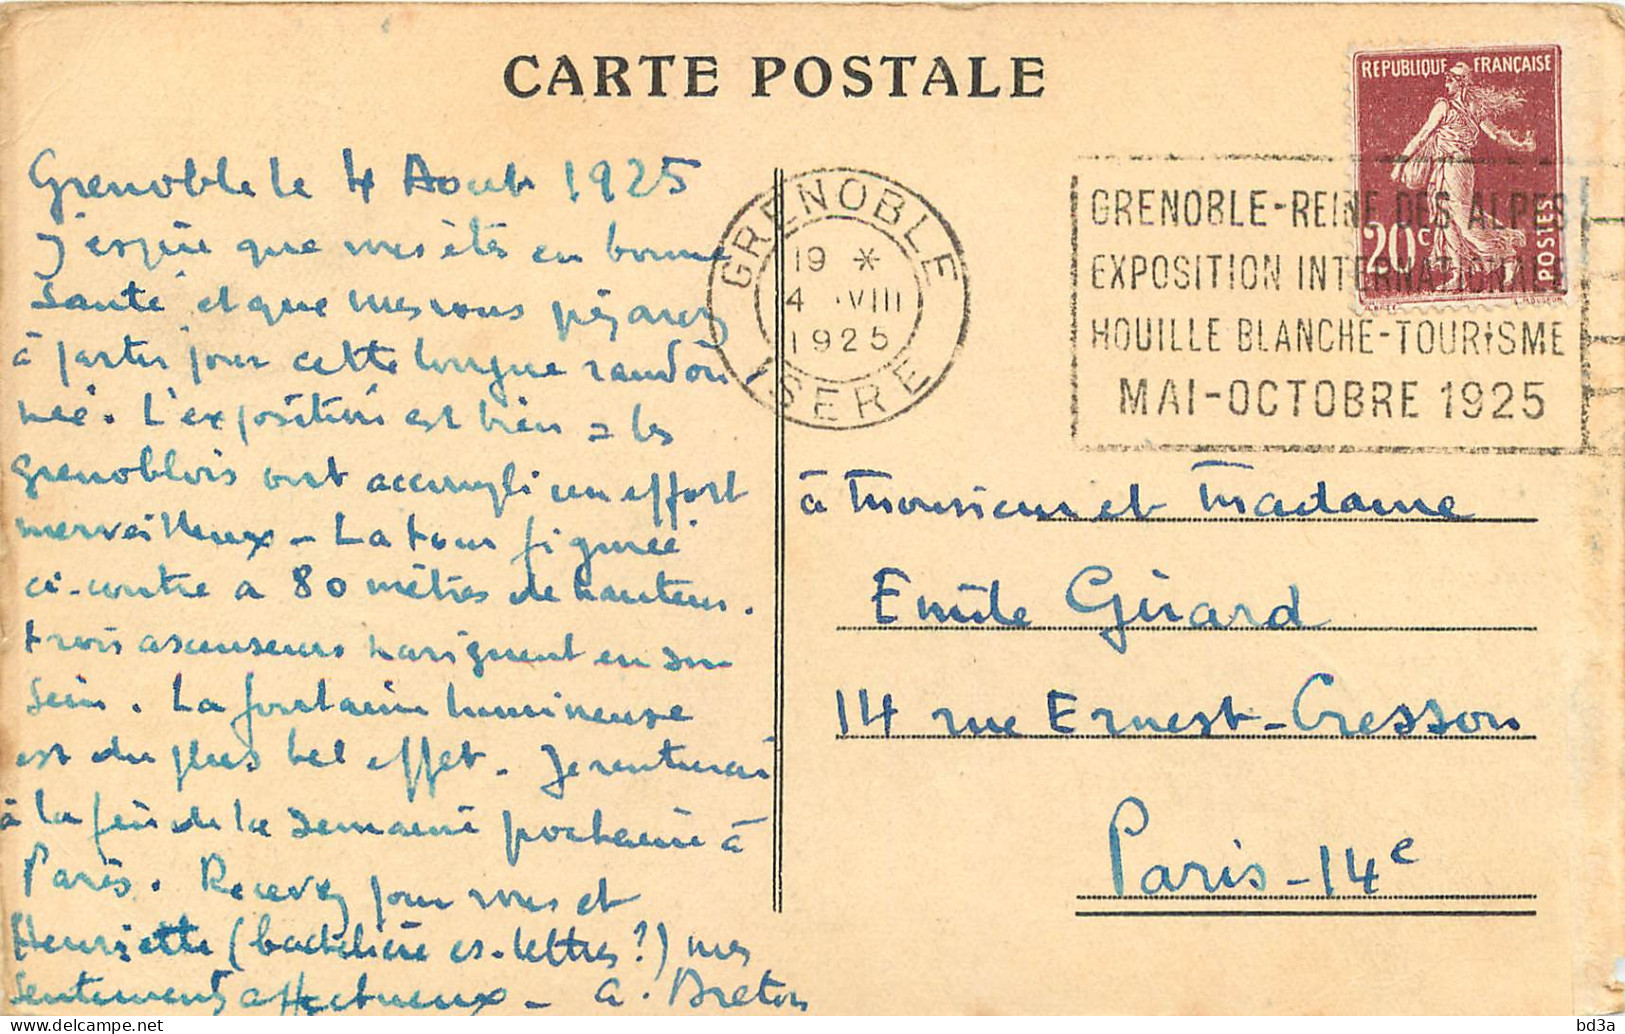 CARTE POSTALE
REPUBLIQUE FRANÇAISE
20c
POSTES
GRENOBLE
19 *
4 VIII
1925
ISERE
GRENOBLE-REINE DES ALPES
EXPOSITION INTERNATIONALE
HOUILLE BLANCHE-TOURISME
MAI-OCTOBRE 1925
Grenoble le 4 Aout 1925
J'espère que vous êtes en bonne
santé et que vous
à partir pour cette longue randon
née. L'exposition est bien = les
grenoblois ont accompli un effort
merveilleux - La tour figurée
ci-contre a 80 mètres de hauteur.
trois ascenseurs naviguent en son
sein. La fontaine lumineuse
est du plus bel effet. Je rentrerai
à la fin de la semaine prochaine à
Paris. Recevez pour vous et
Henriette (bachelière es-lettres?) mes
sentiments affectueux - a. Breton
à Monsieur et Madame
Emile Girard
14 rue Ernest-Cresson
Paris-14e
bd3a